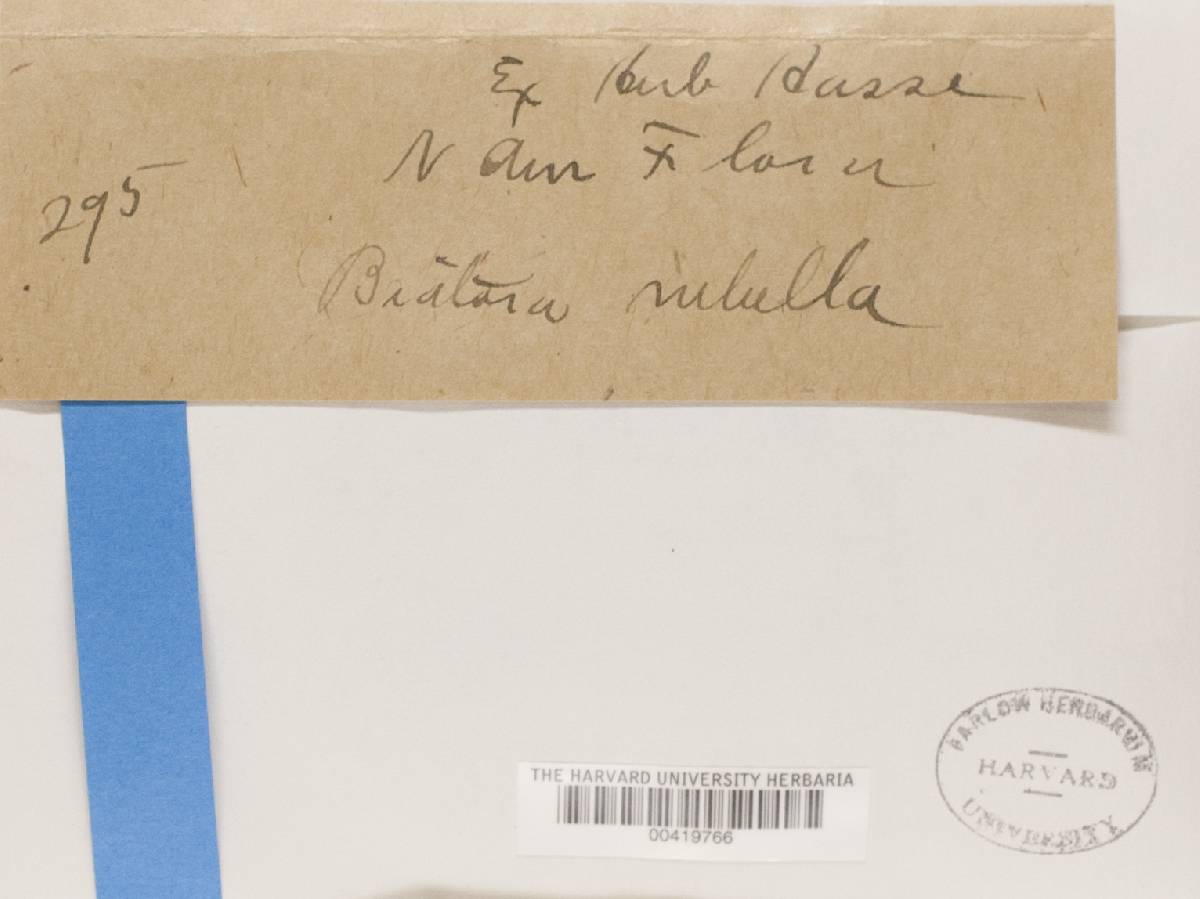 Ex Herb Hasse
N Am Flora
295
Biatora rubella
THE HARVARD UNIVERSITY HERBARIA
00419766
FARLOW HERBARIUM
HARVARD
UNIVERSITY